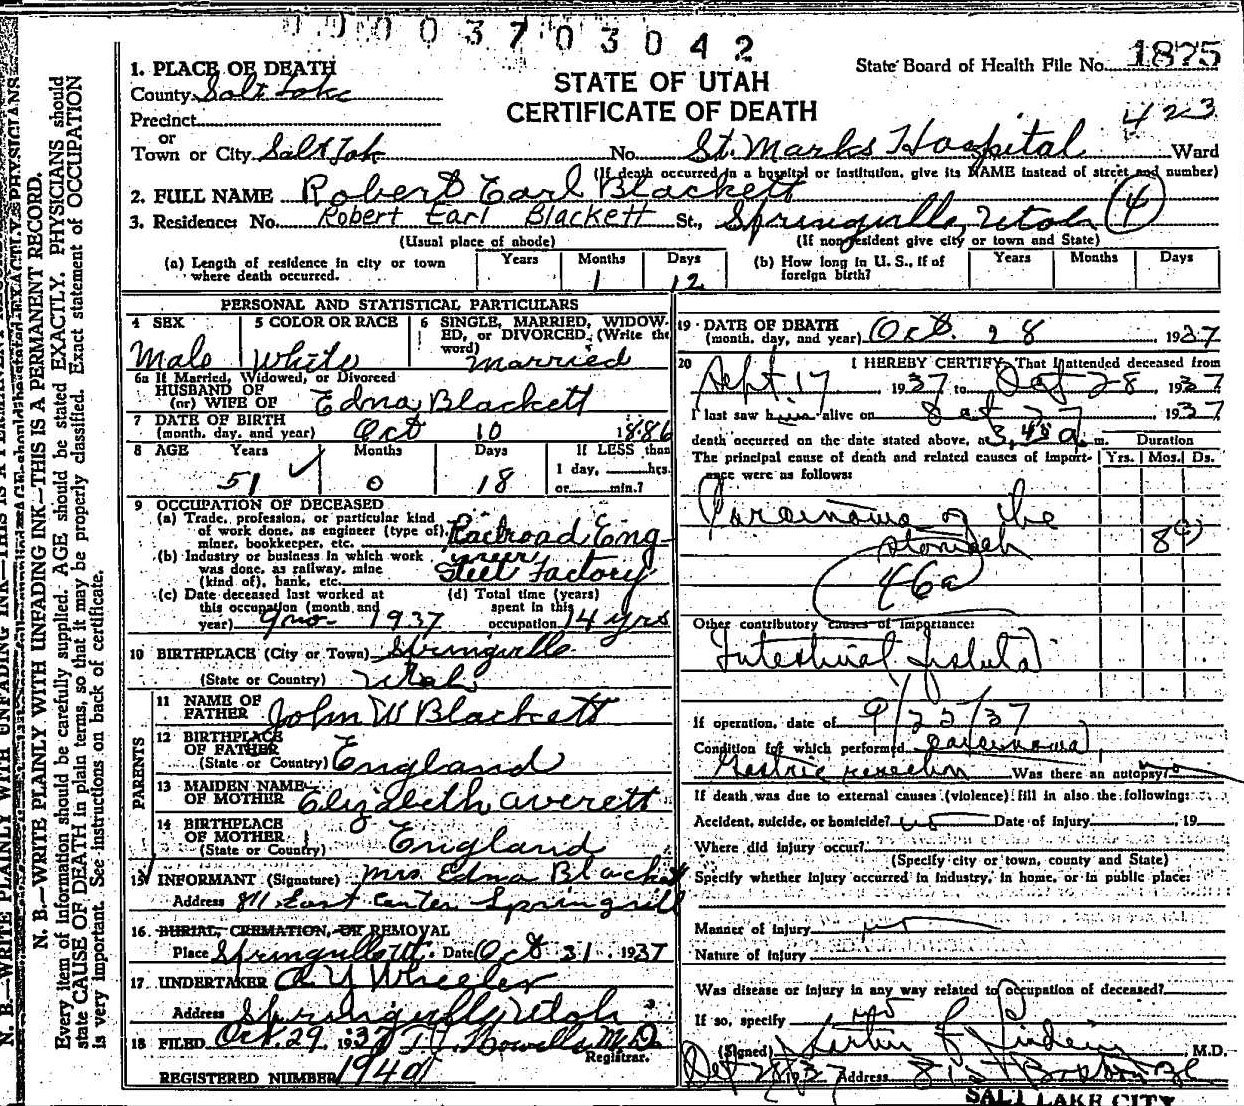 0003703042
1. PLACE OF DEATH
STATE OF UTAH
CERTIFICATE OF DEATH
State Board of Health File No. 1875
County Salt Lake
423
Precinct
or
Town or City Salt Lak No. St. Marks Hospital Ward
(If death occurred in a hospital or institution, give its NAME instead of street and number)
2. FULL NAME Robert Earl Blackett
3. Residence: No. Robert Earl Blackett St., Springville, Utah (4)
(Usual place of abode) (If nonresident give city or town and State)
(a) Length of residence in city or town where death occurred. Years Months 1 Days 12
(b) How long in U. S., if of foreign birth? Years Months Days
PERSONAL AND STATISTICAL PARTICULARS
4 SEX Male
5 COLOR OR RACE White
6 SINGLE, MARRIED, WIDOWED, or DIVORCED, (Write the word) Married
6a If Married, Widowed, or Divorced
HUSBAND OF
(or) WIFE OF Edna Blackett
7 DATE OF BIRTH
(month, day, and year) Oct 10 1886
8 AGE Years 51 Months 0 Days 18 If LESS than
1 day, hrs.
or min.?
9 OCCUPATION OF DECEASED
(a) Trade, profession, or particular kind
of work done, as engineer (type of),
miner, bookkeeper, etc. Railroad Engineer
(b) Industry or business in which work
was done, as railway, mine
(kind of), bank, etc. Steel Factory
(c) Date deceased last worked at
this occupation (month and
year) 9 mo- 1937
(d) Total time (years)
spent in this
occupation 14 yrs
10 BIRTHPLACE (City or Town) Springville
(State or Country) Utah
PARENTS
11 NAME OF
FATHER John W Blackett
12 BIRTHPLACE
OF FATHER
(State or Country) England
13 MAIDEN NAME
OF MOTHER Elizabeth Averett
14 BIRTHPLACE
OF MOTHER
(State or Country) England
15 INFORMANT (Signature) Mrs Edna Blackett
Address East Center Springvill
16. BURIAL, CREMATION, OR REMOVAL
Place Springville Ut. Date Oct 31. 1937
17. UNDERTAKER A Y Wheeler
Address Springville Utah
18 FILED Oct. 29, 1937 T. J. Howells M.D.
Registrar.
REGISTERED NUMBER 1940
19 DATE OF DEATH
(month, day, and year) Oct. 28, 1937
20 I HEREBY CERTIFY, That I attended deceased from
Sept 17 1937 to Oct 28, 1937
I last saw him alive on Oct 27, 1937
death occurred on the date stated above, at 3,40 a. m. Duration
The principal cause of death and related causes of importance were as follows: Yrs. Mos. Ds.
Carcinoma of the
stomach 8
46a
Other contributory causes of importance:
Intestinal fistula
If operation, date of 9/22/37
Condition for which performed carcinoma,
Gastric resection Was there an autopsy? no
If death was due to external causes (violence) fill in also the following:
Accident, suicide, or homicide? no Date of injury 19
Where did injury occur?
(Specify city or town, county and State)
Specify whether injury occurred in industry, in home, or in public place:
Manner of injury
Nature of injury
Was disease or injury in any way related to occupation of deceased?
If so, specify no
(Signed) Martin C Lindem, M.D.
Oct 28 1937 Address
SALT LAKE CITY
N. B.—WRITE PLAINLY WITH UNFADING INK—THIS IS A PERMANENT RECORD.
Every item of information should be carefully supplied. AGE should be stated EXACTLY. PHYSICIANS should
state CAUSE OF DEATH in plain terms, so that it may be properly classified. Exact statement of OCCUPATION
is very important. See instructions on back of certificate.